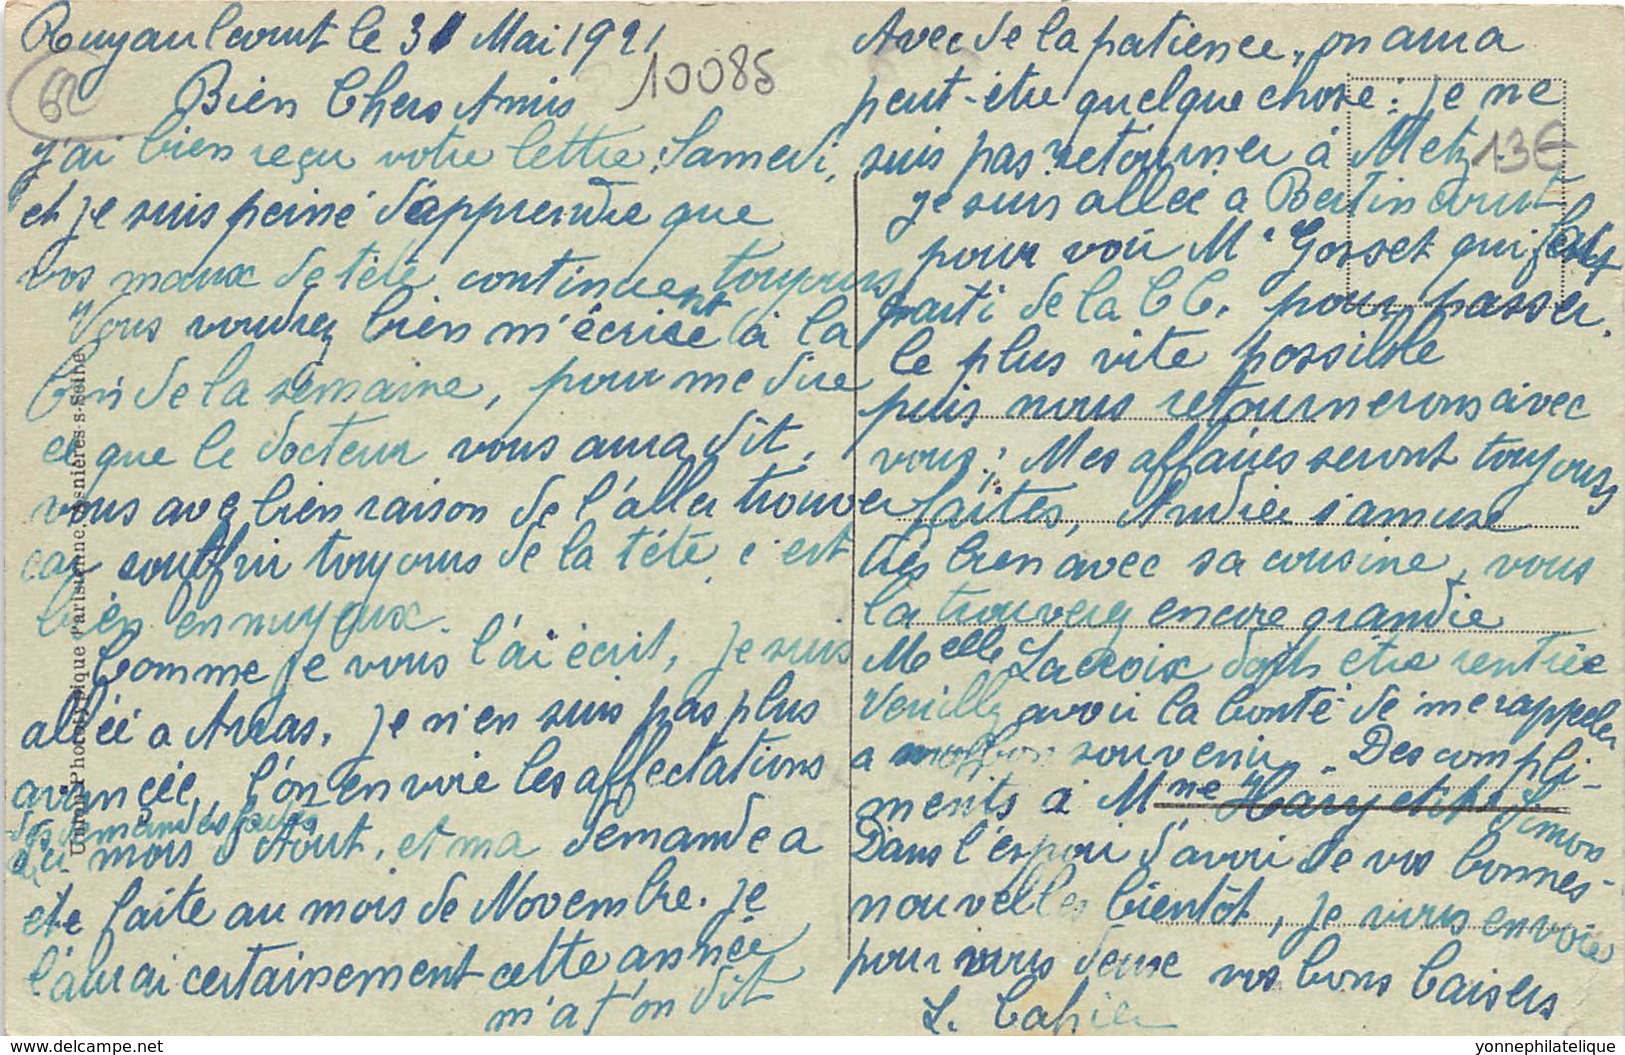 Ruyaulcourt le 31 Mai 1921
10085
62
Bien Chers Amis
j'ai bien reçu votre lettre Samedi,
et je suis peiné d'apprendre que
vos maux de tête continuent toujours
Vous voudrez bien m'écrire à la
fin de la semaine, pour me dire
ce que le docteur vous aura dit.
vous avez bien raison de l'aller trouver
car souffrir toujours de la tête c'est
bien ennuyeux.
Comme je vous l'ai écrit, je suis
allée a Arras, je n'en suis pas plus
avancée, l'on envoie les affectations
des demandes faites
du mois d'Aout, et ma demande a
été faite au mois de Novembre. je
l'aurai certainement cette année
m'a t'on dit
Avec de la patience, on aura
peut-être quelque chose : je ne
suis pas retourner à Metz
13€
je suis allée a Bertincourt
pour voir Mr Gosset qui
parti de la CC. pour passer
le plus vite possible
puis nous retournerons avec
vous ; Mes affaires seront toujours
faites, Andrée s'amuse
très bien avec sa cousine, vous
la trouverez encore grandie
Melle Lacroix doit être rentrée
Veuillez avoir la bonté de me rappeler
a mon bon souvenir. Des compli-
ments à Mme Hary et
Dans l'espoir d'avoir de vos bonnes
nouvelles bientôt, je vous envoie
pour vous deux nos bons baisers
L. Cahier
Union Phototypique Parisienne Asnières-s-Seine
www.delcampe.net
yonnephilatelique